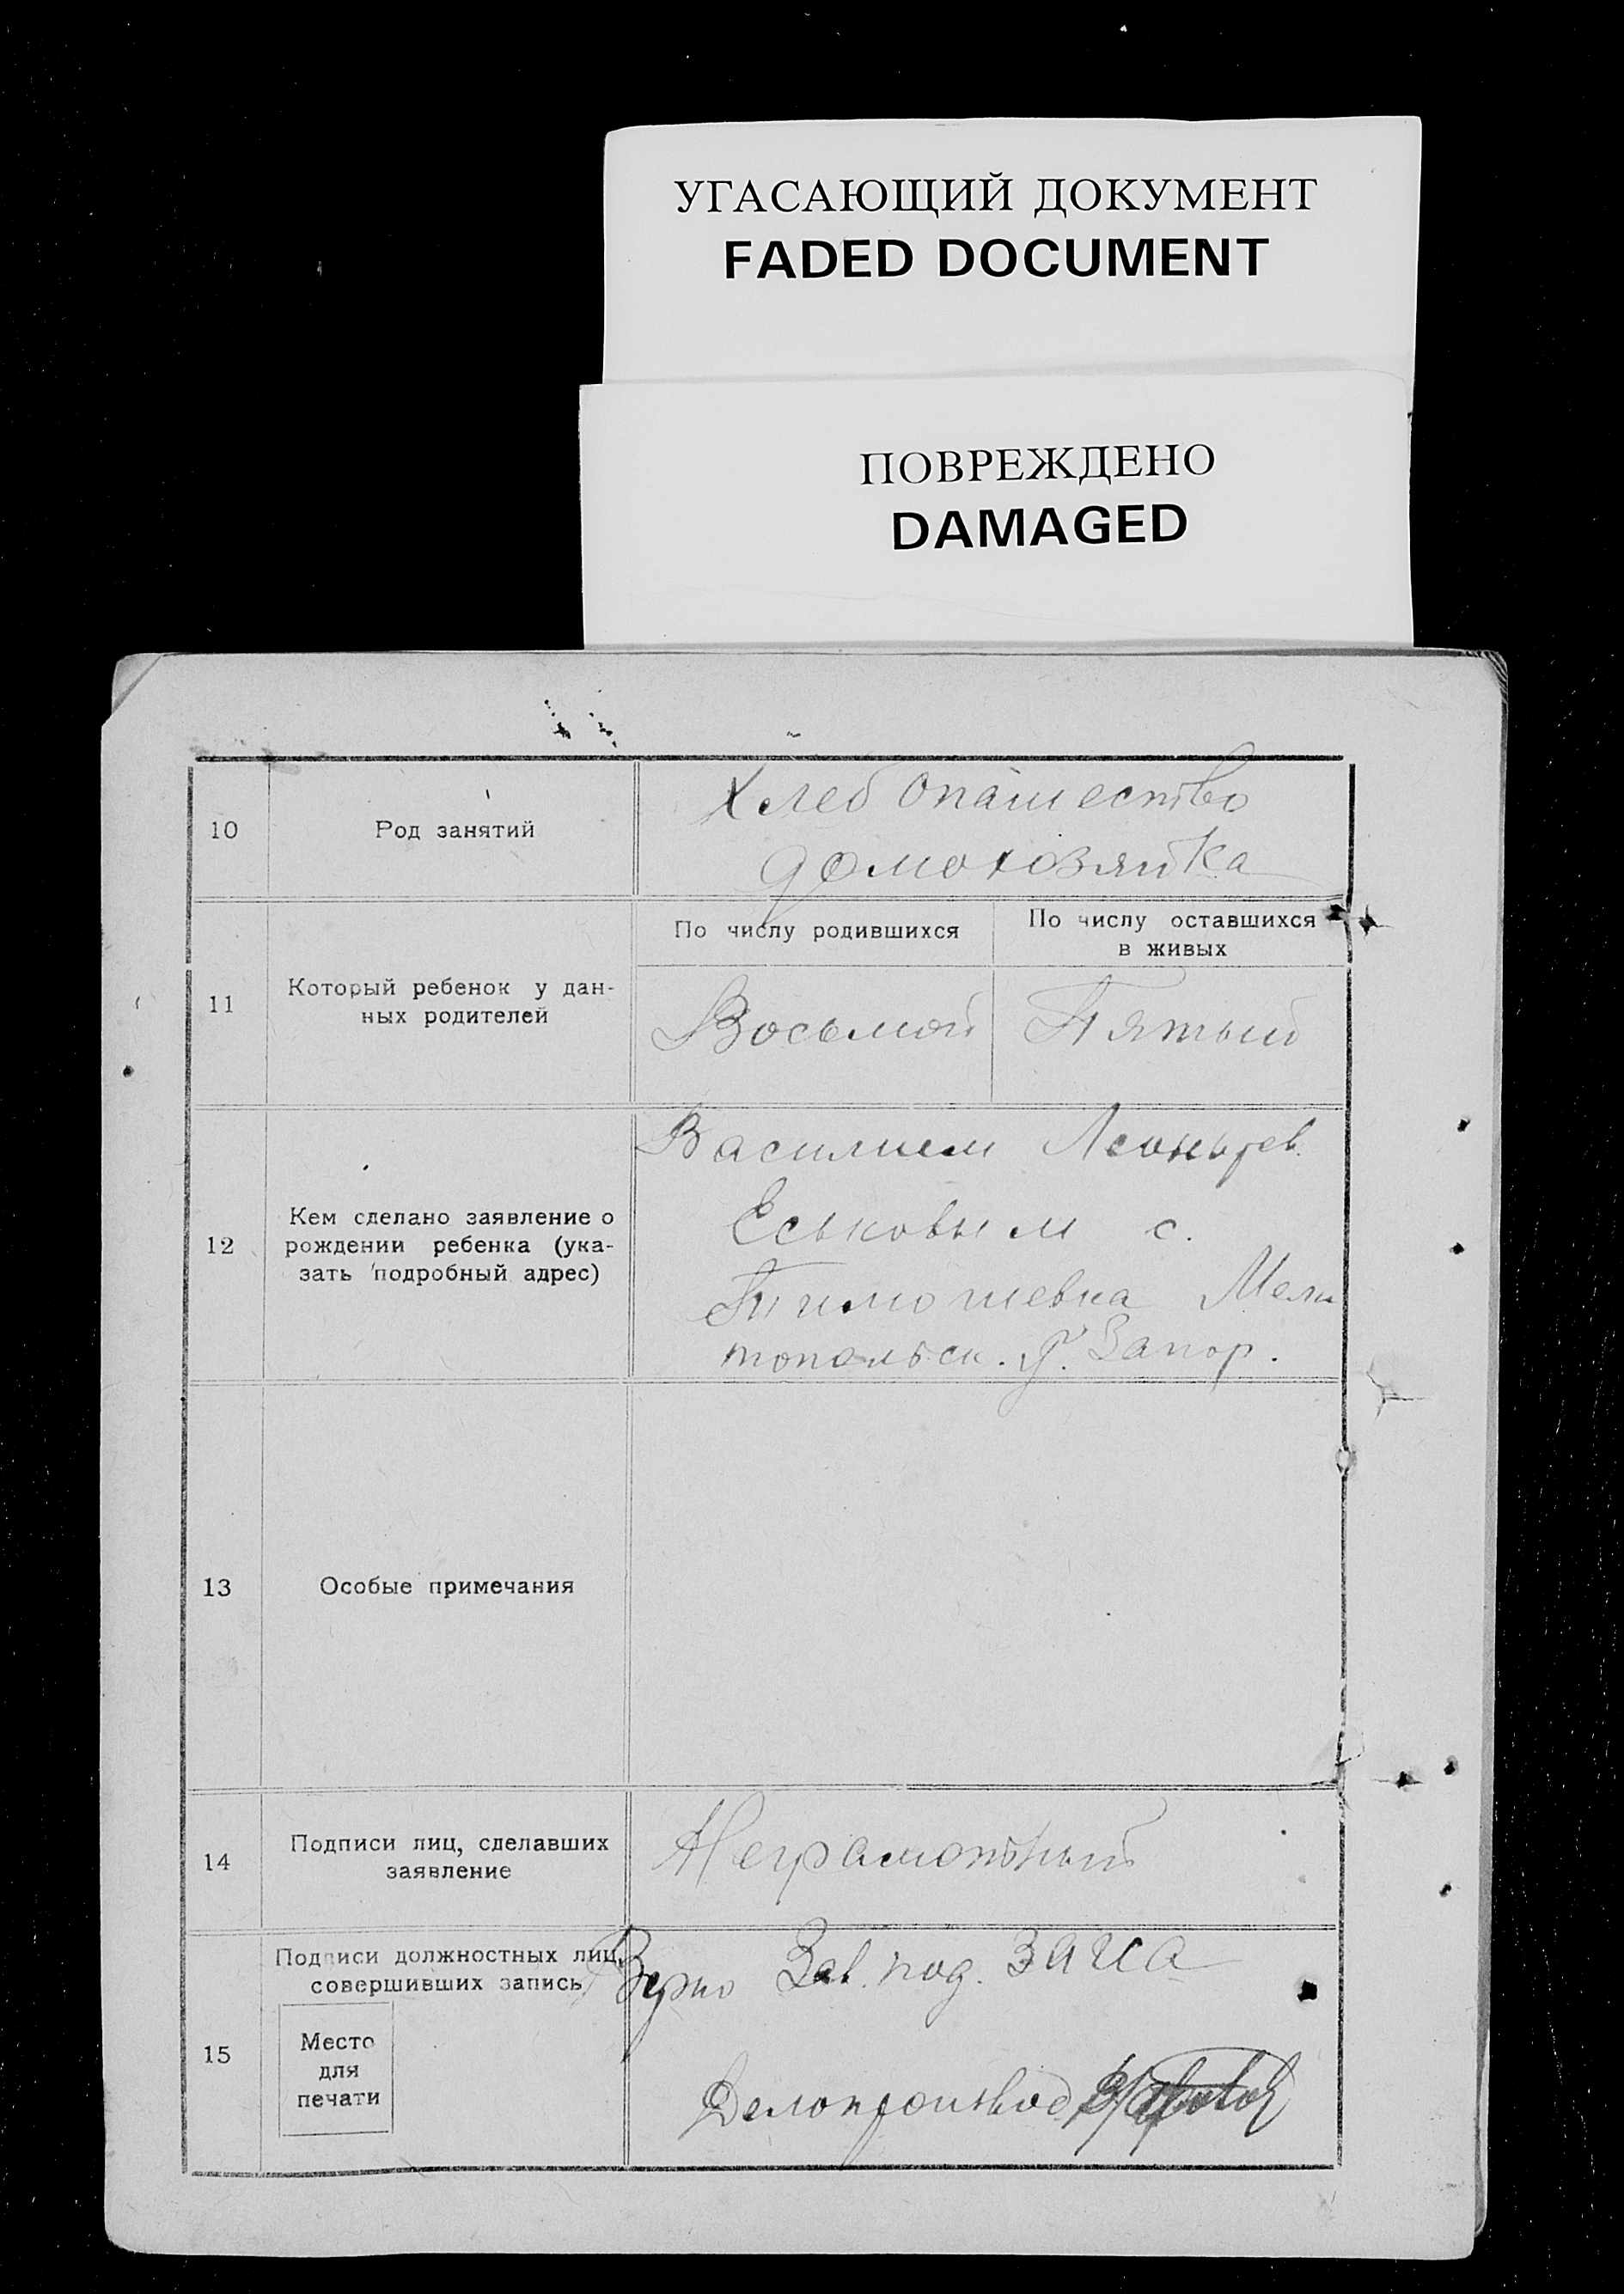 УГАСАЮЩИЙ ДОКУМЕНТ
FADED DOCUMENT
ПОВРЕЖДЕНО
DAMAGED
10
Род занятий
Хлебопашество
домохозяйка
11
Который ребенок у дан-
ных родителей
По числу родившихся
По числу оставшихся
в живых
Восьмой
Пятый
12
Кем сделано заявление о
рождении ребенка (ука-
зать подробный адрес)
Василием Леонтьев.
Еськовым с.
Тимошевка Мели
топольск. у. Запор.
13
Особые примечания
14
Подписи лиц, сделавших
заявление
Неграмотный
15
Подписи должностных лиц,
совершивших запись
Место
для
печати
Верно Зав. под. ЗАГСА
Делопроизвод